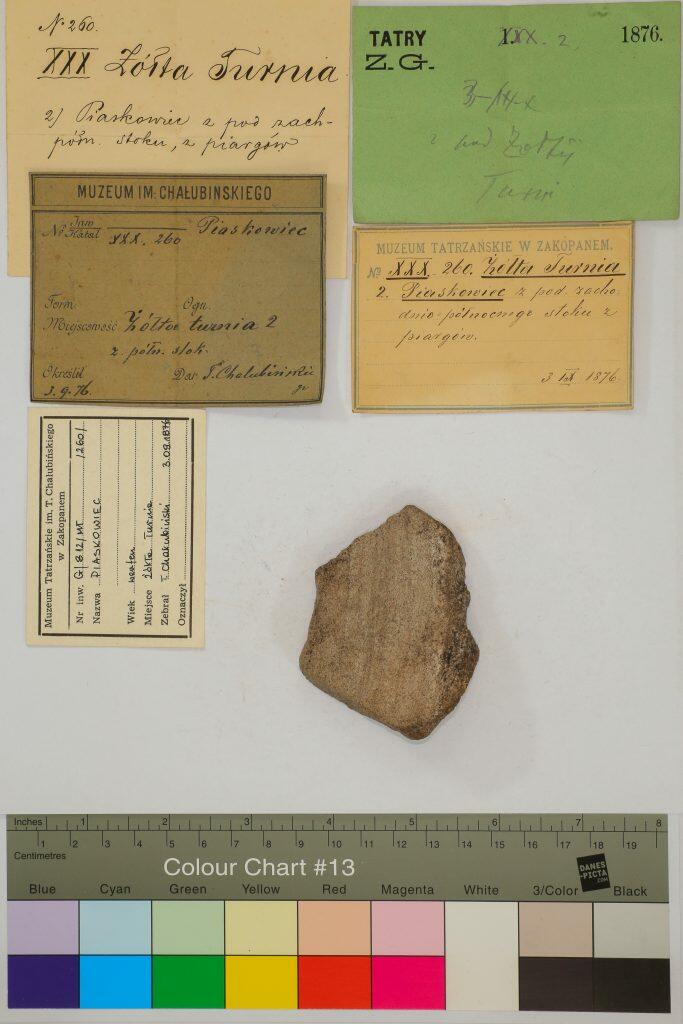 N. 260.
XXX Żółta Turnia
2) Piaskowiec z pod zach-
półn. stoku, z piargów
TATRY
XXX. 2
1876.
Z. G.
z pod Żółtej
Turni
MUZEUM IM. CHAŁUBIŃSKIEGO
№ Inw
Katal XXX. 260 Piaskowiec
Form. Ogn.
Miejscowość Żółta turnia 2
z. półn. stok.
Określił Dar T. Chałubiński
3. 9. 76.
MUZEUM TATRZAŃSKIE W ZAKOPANEM.
№ XXX. 260. Żółta Turnia
2. Piaskowiec z pod zacho-
dnio-północnego stoku z
piargów.
3 IX 1876.
Muzeum Tatrzańskie im. T. Chałubińskiego
w Zakopanem
Nr inw. G/812/MT /260/
Nazwa PIASKOWIEC
Wiek
Miejsce Żółta Turnia
Zebrał T. Chałubiński 3.09.1876
Oznaczył
Inches 1 2 3 4 5 6 7 8
1 2 3 4 5 6 7 8 9 10 11 12 13 14 15 16 17 18 19
Centimetres
Colour Chart #13
DANES
-PICTA
.COM
Blue Cyan Green Yellow Red Magenta White 3/Color Black